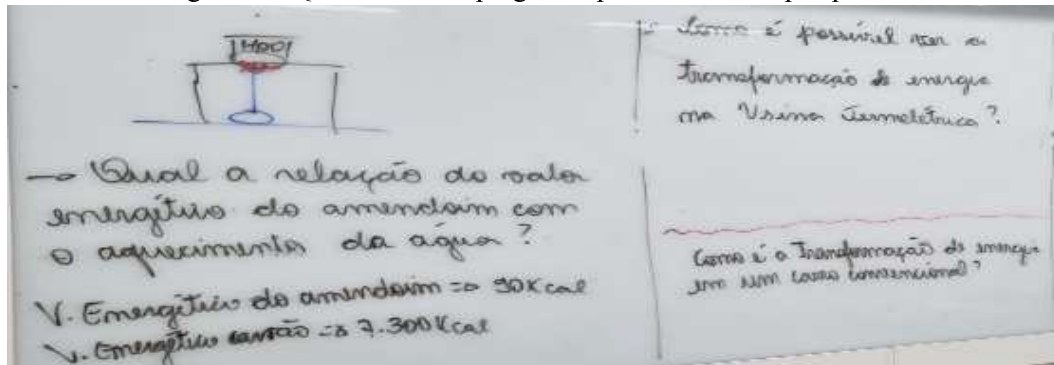 H2O
→ Qual a relação do valor
energético do amendoim com
o aquecimento da água?
V. Energético do amendoim => 90Kcal
V. Energético carvão => 7.300Kcal
Como é possível ver a
transformação de energia
na Usina Termelétrica?
Como é a Transformação de energia
em um carro convencional?